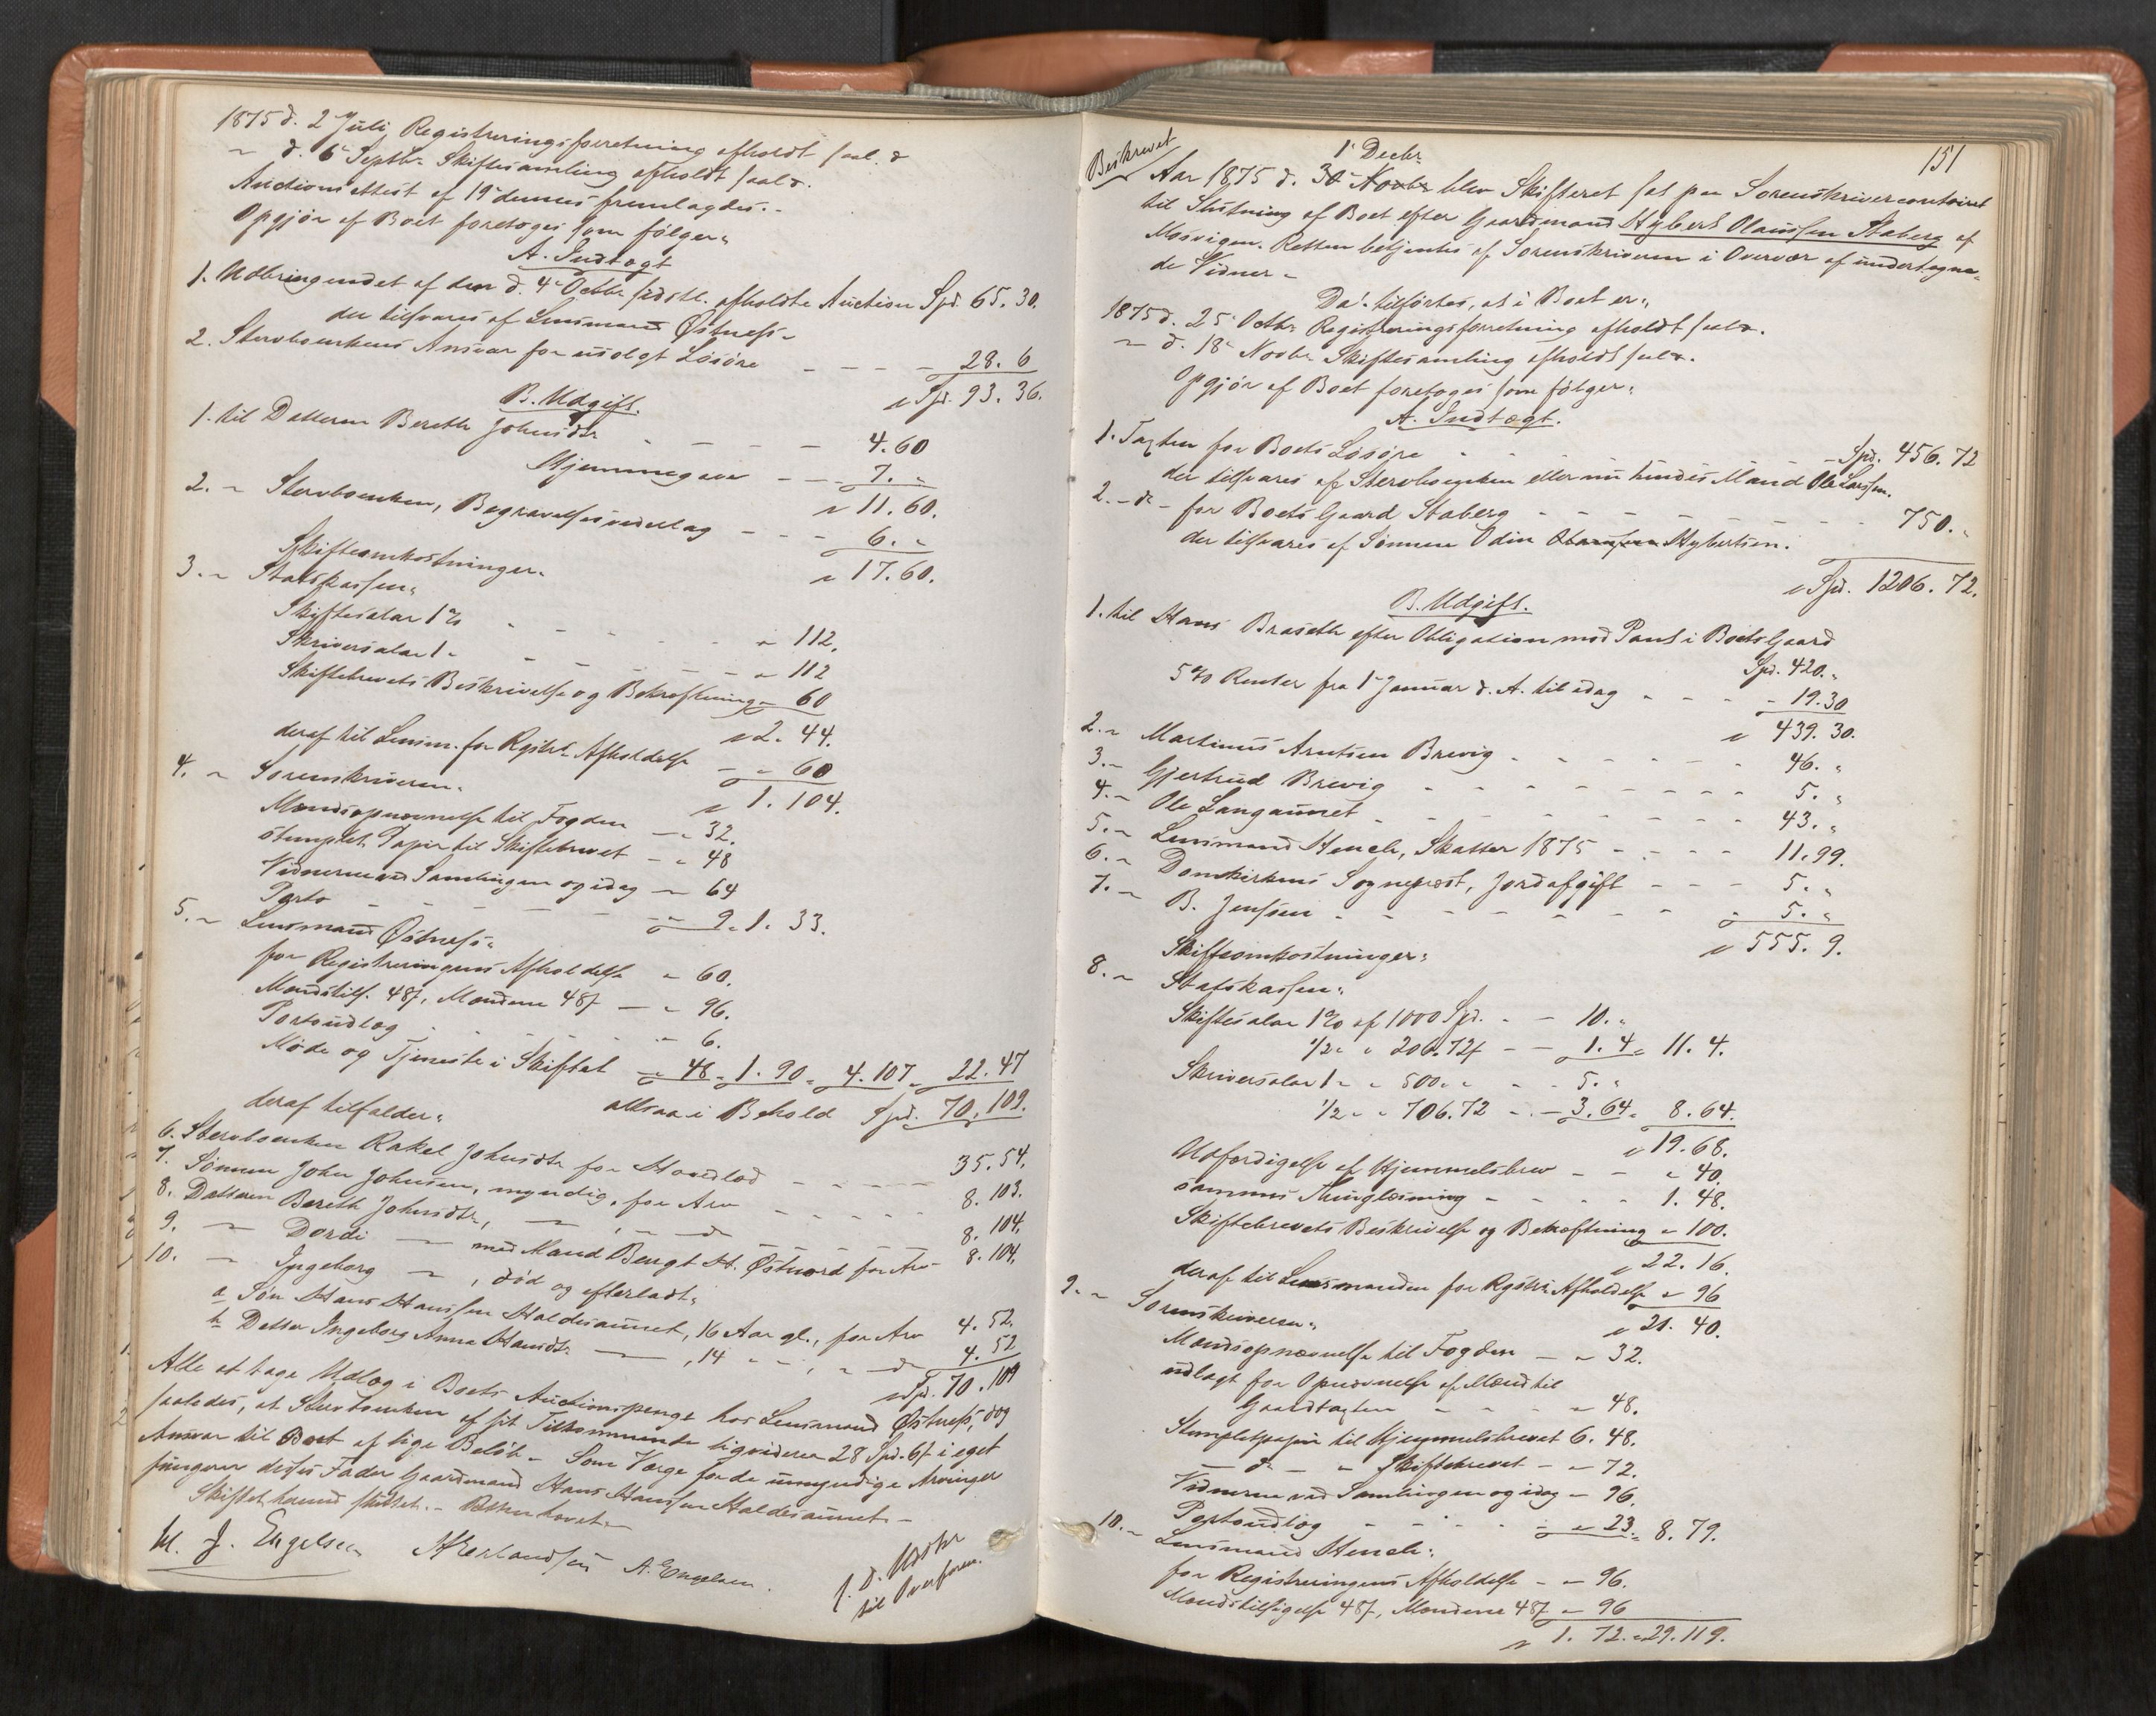 1875 d. 2 Juli Registreringsforretning afholdt saal. d
" d. 6 Septbr. Skiftesamling afholdt saald.
Auctionsattest af 19 dennes fremlagdes.-
Opgjör af Boet foretoges som fölger:
A. Indtægt
1. Udbringendet af den d. 4 Octbr. sidstl. afholdte Auction Spd. 65. 30.
der tilsvares af Lensmand Østnæss.
2. Stervboenkens Ansvar for usolgt Lösöre - - - - 28. 6
Spd. 93. 36.
B. Udgift.
1. til Datteren Bereth Johnsdtr - - - - 4. 60
Hjemmegave - - - 7. "
11. 60.
2. " Stervboenken, Begravelsesvederlag - - - 6. "
17. 60.
Skifteomkostninger.
3. " Statskassen:
Skiftesalær 1 % - - - - " 112.
Skriversalær 1 " - - - - " 112
Skiftebrevets Beskrivelse og Bekræftning " 60
2. 44.
deraf til Lensm. for Rgstrs Afholdelse - " 60
1. 104.
4. " Sorenskriveren.
Mændsopnævnelse til Fogden - " 32.
stemplet Papir til Skiftebrevet - " 48
Vidnerne ved Samlingen og idag - 64
Porto - - - - 9. 1. 33.
5. " Lensmand Østnæss.
for Registreringens Afholdelse " 60.
Mændstils. 48 f, Mændene 48 f - " 96.
Portoudlæg - - - 6.
Möde og Tjeneste i Skiftet " 48. 1. 90. 4. 107. 22. 47
altsaa i Behold Spd. 70. 109.
deraf tilfalder:
6. Stervboenken Rakel Johnsdtr for Hovedlod - - - 35. 54.
7. Sönnen John Johnsen, myndig, for Arv - - - 8. 103.
8. Datteren Bereth Johnsdtr, - , - d - - - 8. 104.
9. - Dordi - med Mand Bengt H. Østnord for Arv 8. 104.
10. - Ingeborg - , död og efterladt:
a Sön Hans Hanssen Haldesaunet, 16 Aar gl., for Arv 4. 52.
b Datter Ingeborg Anna Hansdtr - , 14 " - , - d - 4. 52
Spd. 70. 109
Alle at tage Udlæg i Boets Auctionspenge hos Lensmand Østnæss, dog
saaledes, at Stervboenken af sit Tilkommende ligviderer 28 Spd. 6 f i eget
Ansvar til Boet af lige Belöb. - Som Værge for de umyndige Arvinger
fungerer disses Fader Gaardmand Hans Hanssen Haldesaunet. -
Skiftet hermed sluttet. - Retten hævet.
M. J. Engelsen H Erlandsen A. Engelsen.
s. d. Udskr
til Overform.
151
Beskrevet
1 Decbr.
Aar 1875 d. 30 Novbr blev Skifteret sat paa Sorenskrivercontoiret
til Slutning af Boet efter Gaardmand Hybert Olaussen Staberg af
Mosvigen. Retten betjentes af Sorenskriveren i Overvær af undertegne-
de Vidner.
Da: tilförtes, at i Boet er:
1875 d. 25 Octbr. Registreringsforretning afholdt saald.
" d. 18 Novbr. Skiftesamling afholdt saald.
Opgjör af Boet foretoges som fölger:
A. Indtægt.
1. Taxten for Boets Lösöre - - - - Spd. 456. 72
der tilsvares af Stervboenken eller nu hendes Mand Ole Larssen.
2. - d - for Boets Gaard Staberg - - - - 750. "
der tilsvares af Sönnen Odin Olaussen Hybertsen.
Spd. 1206. 72.
B. Udgift.
1. til Hans Braseth efter Obligation mod Pant i Boets Gaard
Spd. 420. "
5 % Renter fra 1 Januar d. A. til idag - - - 19. 30
439. 30.
2. " Martinus Arntsen Brevig - - - - 46. "
3. - Gjertrud Brevig - - - - 5. "
4. - Ole Langaunet - - - - 43. "
5. - Lensmand Hench, Skatter 1875 - - - 11. 99.
6. " Domkirkens Sognepræst, Jordafgift - - - 5. "
7. - B. Jenssen - - - - 5. "
555. 9.
Skifteomkostninger:
8. " Statskassen:
Skiftesalær 1 % af 1000 Spd. - - 10. "
1/2 " " 206. 72 f - - 1. 4 = 11. 4.
Skriversalær 1 " " 500. " - - 5. "
1/2 " " 706. 72 - - 3. 64 = 8. 64.
19. 68.
Udfærdigelse af Hjemmelsbrev - - " 40.
sammes Thinglæsning - - - 1. 48.
Skiftebrevets Beskrivelse og Bekræftning " 100.
22. 16.
deraf til Lensmanden for Rgstrs Afholdelse " 96
21. 40.
9. " Sorenskriveren:
Mændsopnævnelse til Fogden - " 32.
udlagt for Opnævnelse af Mænd til
Gaardtaxten - - - " 48.
Stempletpapir til Hjemmelsbrevet 6. 48.
- d - " Skiftebrevet - " 72.
Vidnerne ved Samlingen og idag - 96.
Portoudlæg - - - " 23. 8. 79.
10. " Lensmand Hench:
for Registreringens Afholdelse - " 96.
Mændstilsigelse 48 f, Mændene 48 f " 96
1. 72. 29. 119.